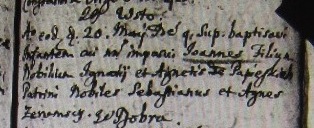 Aº eod. d. 20. Maij Dẽ q. Sup. baptisavi
Infantem cui nom̃ imposui Joannes Filiũ
Nobilium Ignatij et Agnetis de Papeskich
Patrini Nobiles Sebastianus et Agnes
Zeromscy. z Dobra.